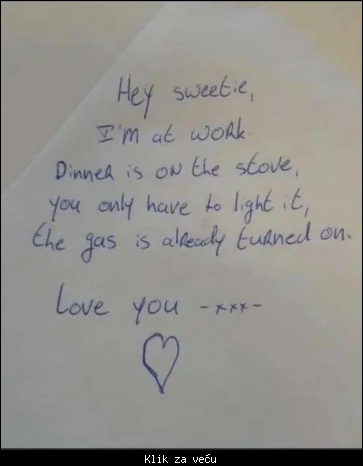 Hey sweetie,
I'm at work.
Dinner is on the stove,
you only have to light it,
the gas is already turned on.
Love you -xxx-
Klik za veću